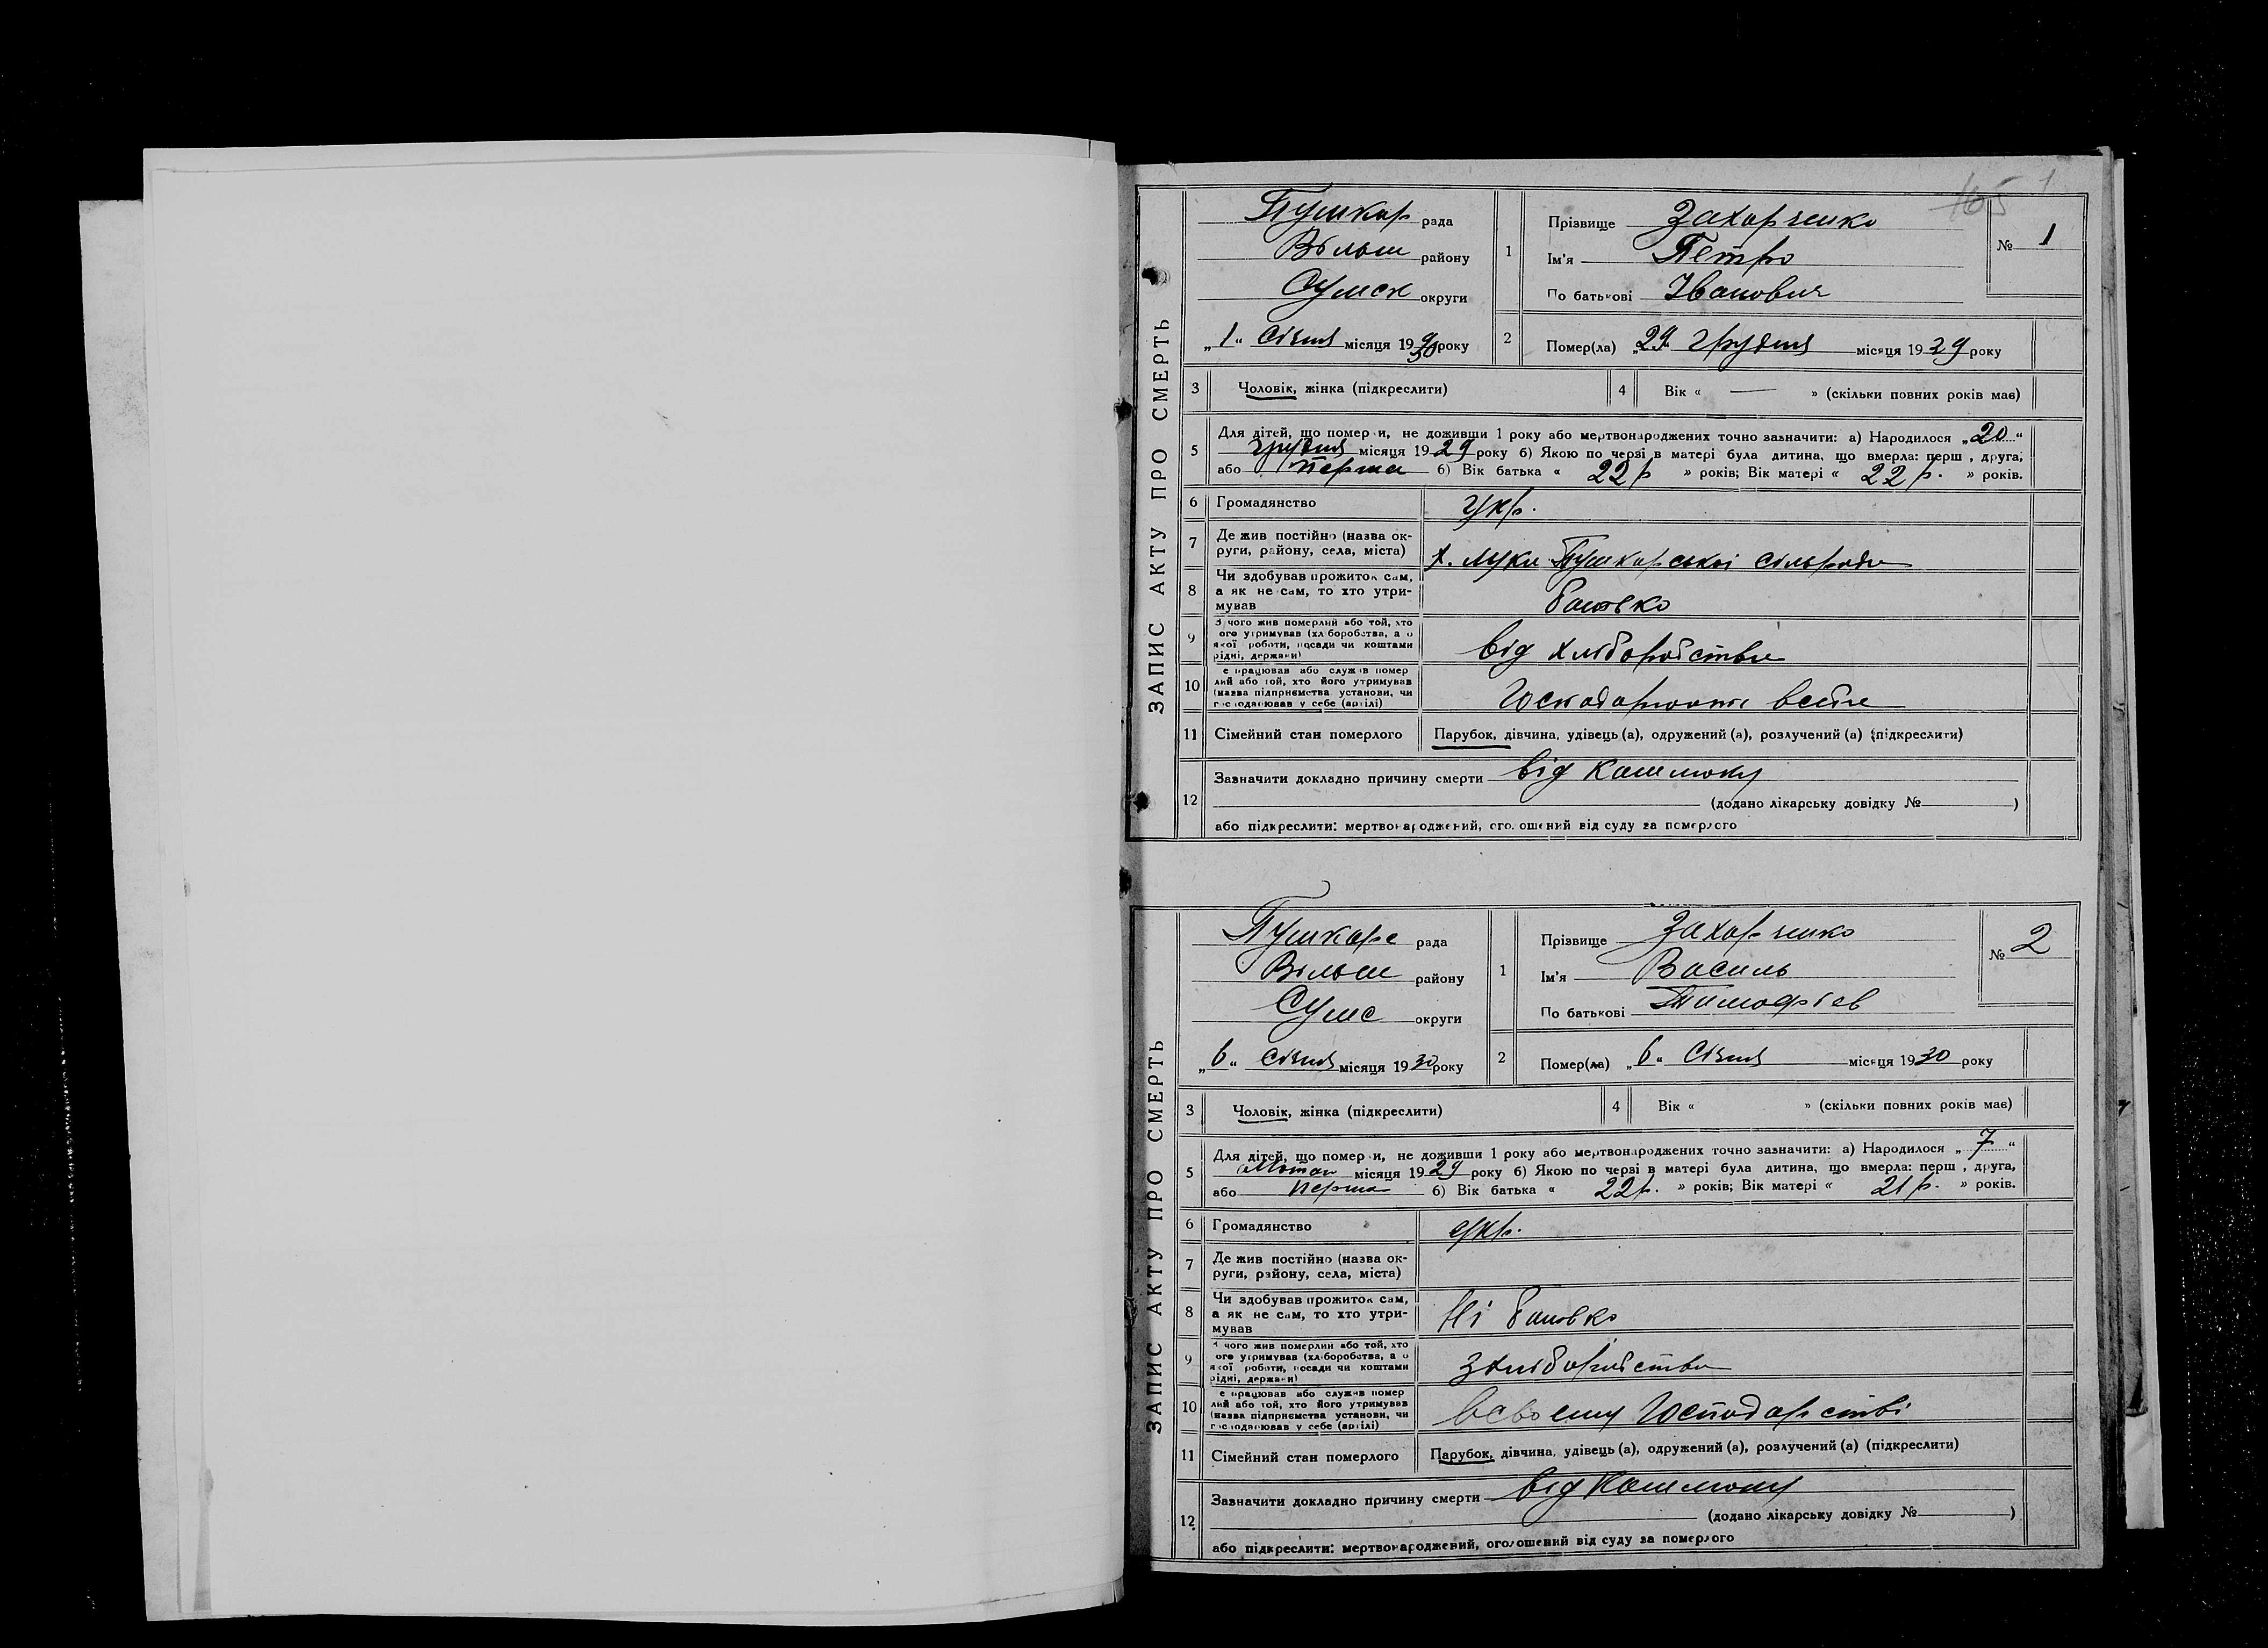 165 1
ЗАПИС АКТУ ПРО СМЕРТЬ
Пушкар рада
Вільш району
Сумск округи
„1“ Січня місяця 1930 року
1
Прізвище Захарченко
Ім'я Петро
По батькові Іванович
№ 1
2 Помер(ла) „29“ Грудня місяця 1929 року
3 Чоловік, жінка (підкреслити)
4 Вік « — » (скільки повних років має)
5 Для дітей, що померли, не доживши 1 року або мертвонароджених точно зазначити: а) Народилося „20“
грудня місяця 1929 року б) Якою по черзі в матері була дитина, що вмерла: перш , друга,
або перша б) Вік батька « 22 р » років; Вік матері « 22 р. » років.
6 Громадянство укр.
7 Де жив постійно (назва ок-
руги, району, села, міста) х. Луки Пушкарської сільради
8 Чи здобував прожиток сам,
а як не сам, то хто утри-
мував батько
9 З чого жив померлий або той, хто
ого утримував (хл боробства, а о
якої роботи, посади чи коштами
рідні, держави) від хліборобства
10 е працював або служив помер
лий або той, хто його утримував
(назва підприємства установи, чи
господарював у себе (артілі)
11 Сімейний стан померлого Парубок, дівчина, удівець (а), одружений (а), розлучений (а) (підкреслити)
12 Зазначити докладно причину смерти від кашлюку
(додано лікарську довідку № )
або підкреслити: мертвонароджений, оголошений від суду за померлого
ЗАПИС АКТУ ПРО СМЕРТЬ
Пушкарс рада
Вільш району
Сумс округи
„6“ Січня місяця 1930 року
1
Прізвище Захарченко
Ім'я Василь
По батькові Тимофієв
№ 2
2 Помер(ла) „6“ Січня місяця 1930 року
3 Чоловік, жінка (підкреслити)
4 Вік « » (скільки повних років має)
5 Для дітей, що померли, не доживши 1 року або мертвонароджених точно зазначити: а) Народилося „7“
місяця 1929 року б) Якою по черзі в матері була дитина, що вмерла: перш , друга,
або перша б) Вік батька « 22 р. » років; Вік матері « 21 р. » років.
6 Громадянство укр.
7 Де жив постійно (назва ок-
руги, району, села, міста)
8 Чи здобував прожиток сам,
а як не сам, то хто утри-
мував Ні батько
9 чого жив померлий або той, хто
ого утримував (хл боробства, а о
якої роботи, посади чи коштами
рідні, держави) з хліборобства
10 е працював або служив помер
лий або той, хто його утримував
(назва підприємства установи, чи
господарював у себе (артілі) в своєму господарстві
11 Сімейний стан померлого Парубок, дівчина, удівець (а), одружений (а), розлучений (а) (підкреслити)
12 Зазначити докладно причину смерти від кашлюку
(додано лікарську довідку № )
або підкреслити: мертвонароджений, оголошений від суду за померлого